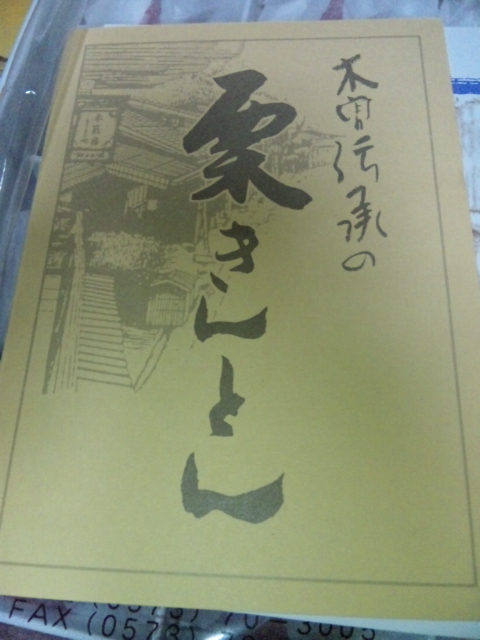 木曽伝承の
栗きんとん
(0573) 70-3005
FAX (0573)